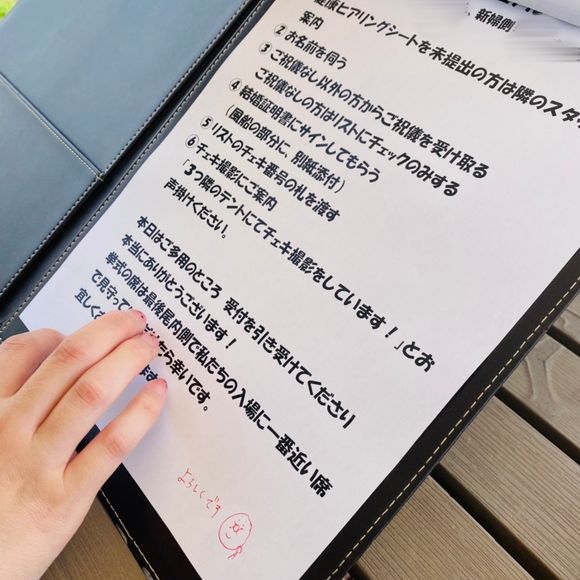 新婦側
健康ヒアリングシートを未提出の方は隣のスタ
案内
② お名前を伺う
③ ご祝儀なし以外の方からご祝儀を受け取る
ご祝儀なしの方はリストにチェックのみする
④ 結婚証明書にサインしてもらう
(風船の部分に、別紙添付)
⑤ リストのチェキ番号の札を渡す
⑥ チェキ撮影にご案内
「3つ隣のテントにてチェキ撮影をしています!」とお
声掛けください。
本日はご多用のところ 受付を引き受けてください
本当にありがとうございます!
挙式の席は最後尾内側で私たちの入場に一番近い席
で見守って たら幸いです。
宜しく ます
よろしくです